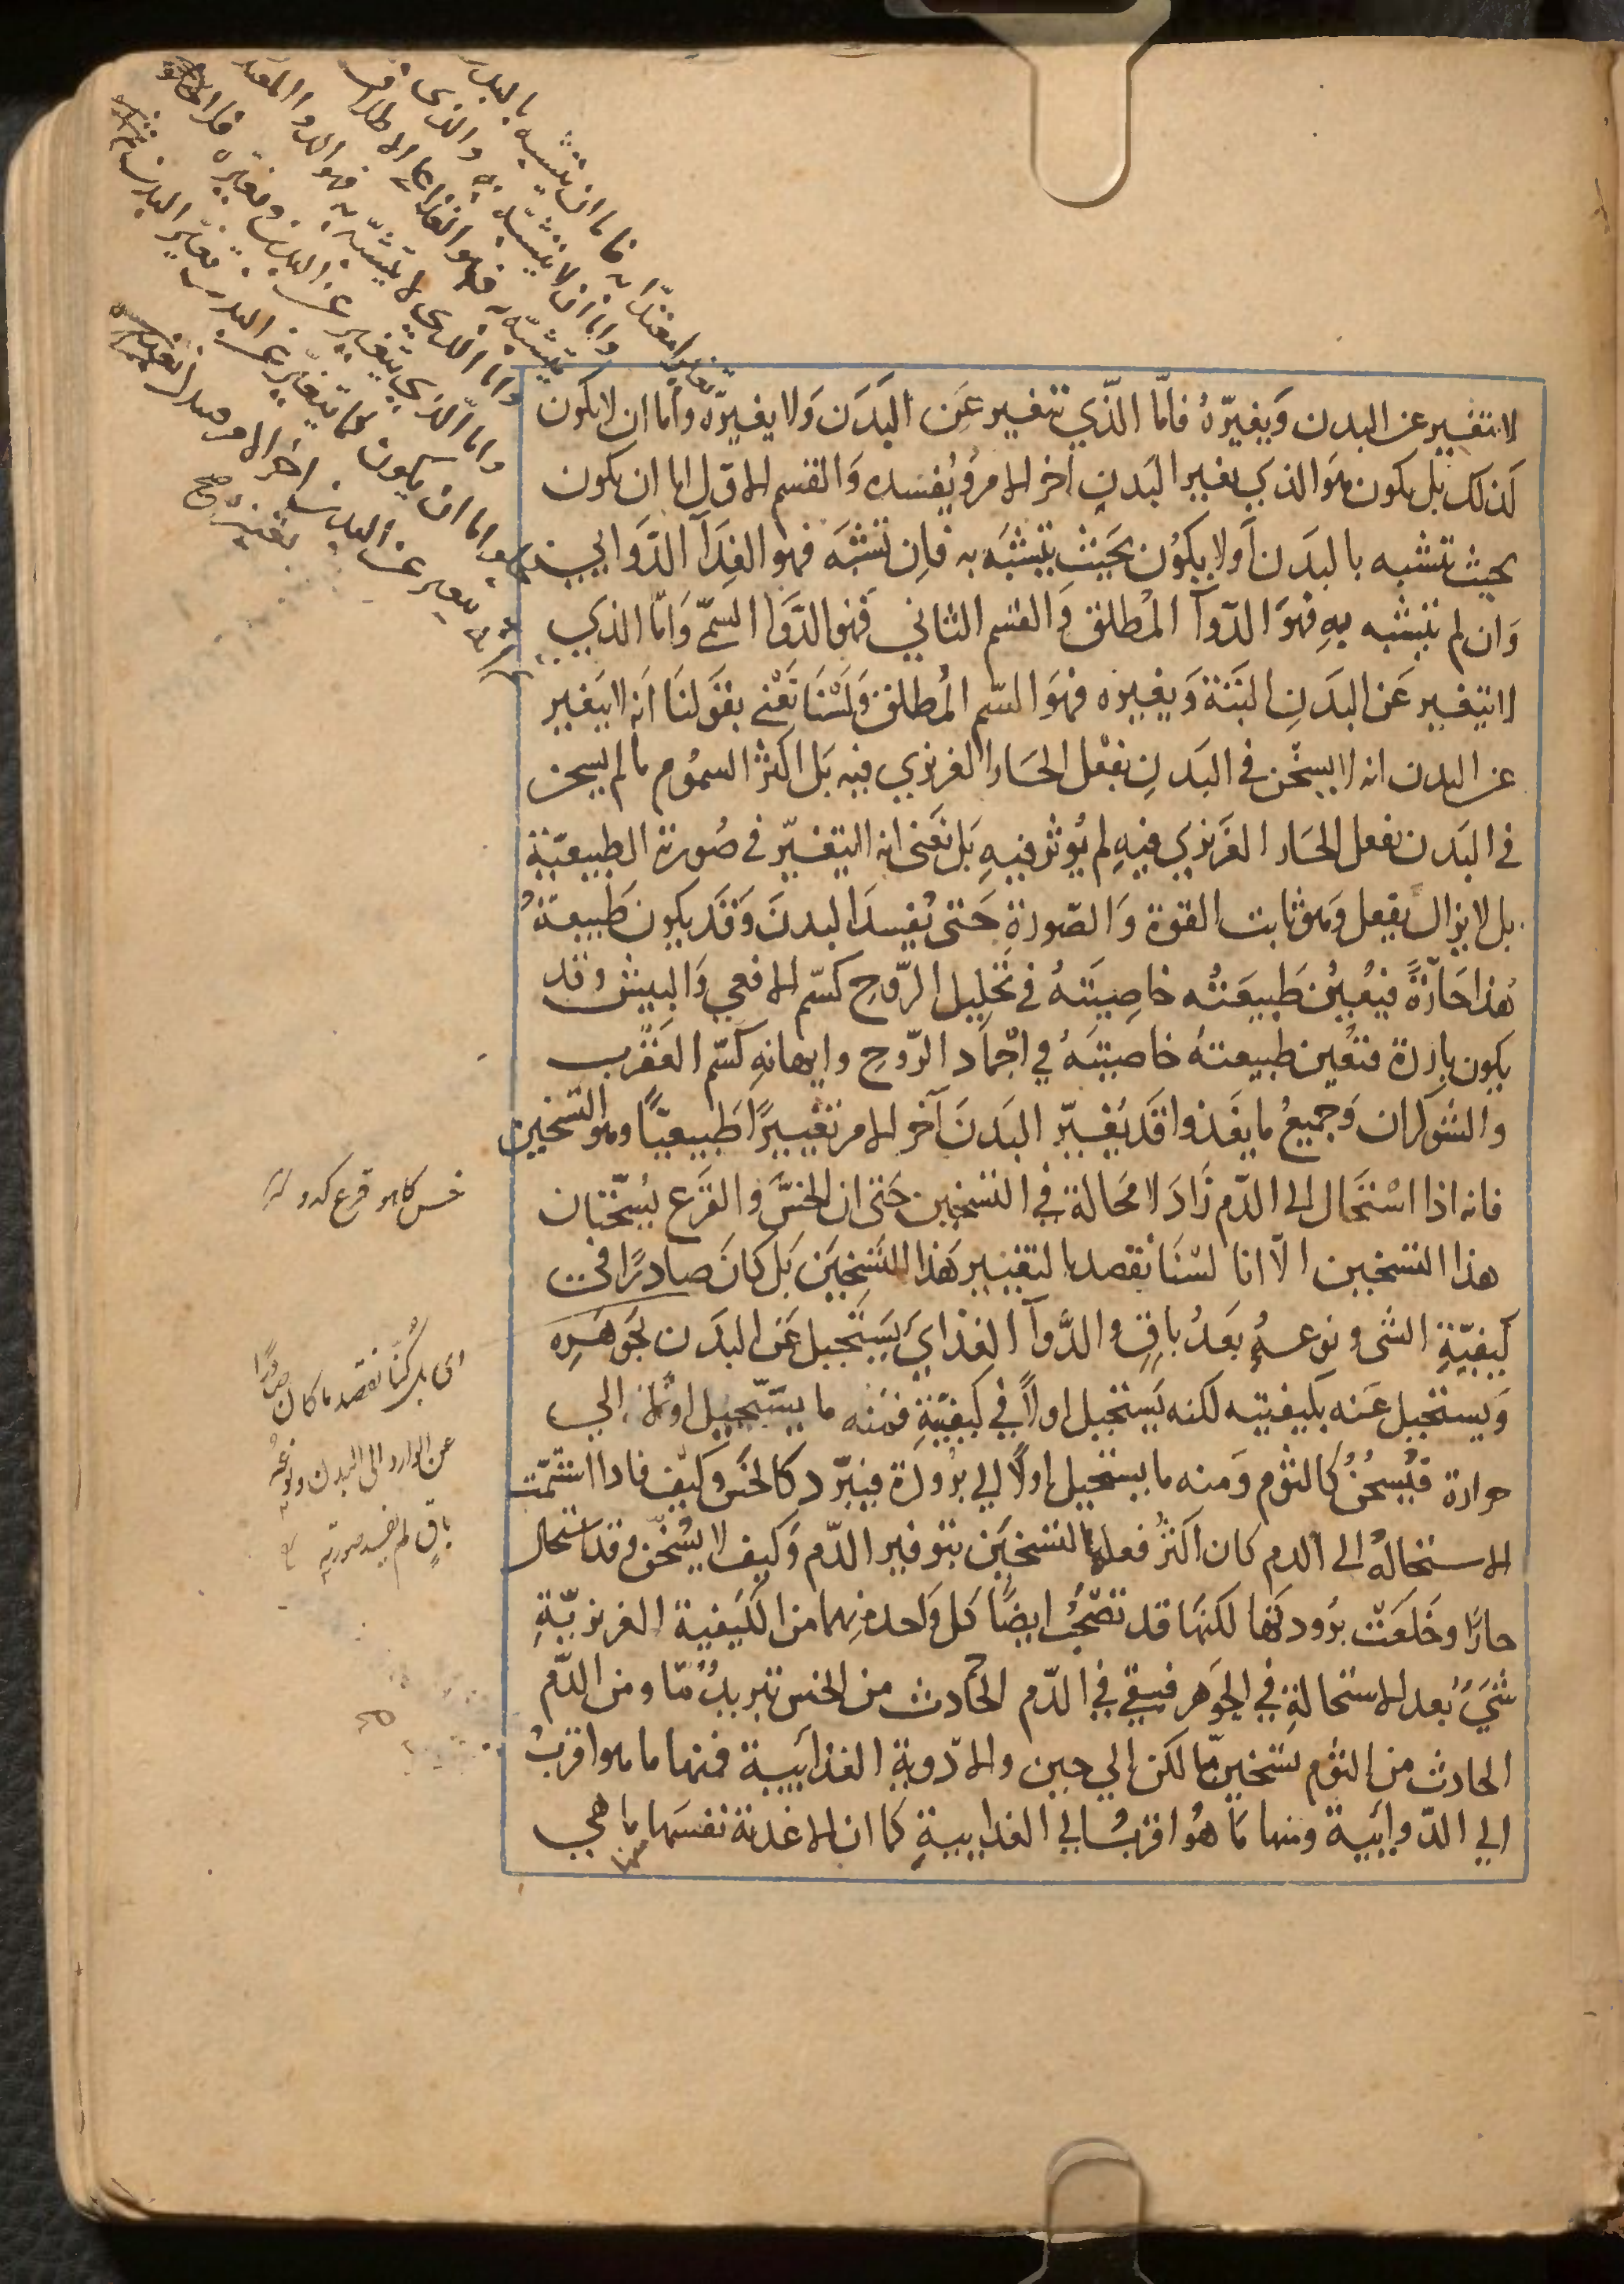 لا يتغير عن البدن ويغيّرهُ فامّا الذّي تتغير عَن البَدَن وَلا يغيرّه واما ان لا يكون
لَذلك بَل يكون هوَ الذيَ يغير البَدن اخر الامروُيُفسده وَالقسم الاوّل اما ان يكون
بحيث تتشبه بالبدَن اَولا يكوُن بحَيثِ يتشبّه به فاِن تشبّه فهو الغِذَآ الدَّوايي
وَان لم يتشبه بهِ فهوَ الدّوآ المُطلق وَالقسم الثاني فهو الدَّوا السّمّي وَامّا الذي
لا يتغير عَن البدَنِ البَتة وَيغيره فهوَ السّم المُطلق وَلسْنَا نَعْني بقوَلنَا انه لا يَتغير
عن البدن انه لا يسخّن في البَدنِ بفعْل الحَار الغريزي فيه بَل اكثر السموُم مالم يسخن
في البَدن بفعل الحَار الغَريزي فيهِ لم يُوثر فيهِ بَل نَعَنى انه لا يتغيّر في صُورته الطبيعيّة
بل لا يزال يفعل وَهو ثابت القوة وَالصّورة حَتى يُفسدَ البدنَ وَقَد يكون طَبيعَةُ
هَذا حَارّةً فيعُينُ طَبيعَتُه خاصِيَتهُ في تَحليل الرّوح كسّم الافعي وَالبيش وقد
يكون باردة فتعُين طبيعتهُ خاصيتهُ في اجْماد الرّوحِ وايهانهِ كسّم العَقرب
والشوكران وَجميعُ ما يغَذوا قَد يُغيّر البَدنَ آخر الامر تغييرًا طَبيعيّاً وهو التسخين
فانه اذا اسْتحَال الى الدّم زَادَ لا مَحالة في التسخين حَتى ان الخسَّ وَ القَرع يُسخّنان
هذا التسخين الاّ انا لسْنَا نقصد بالتغيير هَذا التَسخِيَن بَل كانَ صادرًا عن
كيفيّةِ الشى ونوعهُ بَعدُ باقٍ والدَّوآ الغِذايَ يَستَحيل عَن البدَن بجَوهَرِه
وَيستحيل عَنه بكيفيته لكنه يَستحيل اولاً في كيفيّةِ فمنه ما يستحيل اولا الي
حرارة فيُسخنُ كالثوم وَمنه ما يستحيل اولاً الي برُودة فيبرّد كالخس وكيف فاذا استتمّت
الاستحالهُ الى الدم كان اكثرُ فعلها التسخيَن بتوفير الدّم وَكيف لا يُسخّن وقد استحال
حارًا وخَلعَتّ برُودتها لكنها قد تصْحبُ ايضًا كل وَاحد منهما من الكَيفية الغريزيّة
شيَءٌ بعد الاستحالةِ في الجَوهر فيبقي في الدّم الحَادث من الخس تبريدٌ مّا ومن الدّم
الحادث من الثوم تسخينٌ مّا لكن الي حين والادّويةِ الغذاييّة فمنها ما هو اقربُ
الي الدّوايئة ومنها مَا هُوَ اقربُ الي الغذاييةِ كما ان الاغذية نفسَها ما هي
منها
خس كاهو قرع كدو
اى بل كُنّا نقصد ما كان صادرًا
عن الوارد الى البدن ونوعُه
باقٍ لم تفسد صورته
فاما ان يتشبه بالبدن
واما ان لا يتشبّه به والذى
يتشبّه به فهو الغذا على الاطلاق
واما الذي لا يتشبّه به فهو الدوا المعتدل
واما الذي يتغير عن البدن ويغيره
اما ان يكون كما يتغيّر عن البدن يغيّر البدن
يتغير عن البدن اخر الامر
بغيره صح